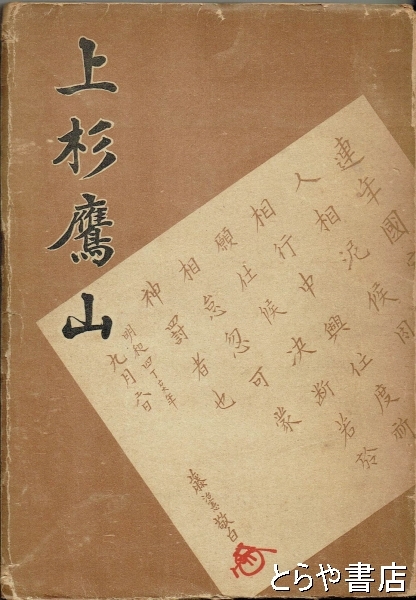 上杉鷹山
連年國家
人相泥候間
相行中興仕度祈
願仕候決断若於
相怠忽可蒙
神罰者也
明和四丁亥年
九月六日
藤憲敬白
とらや書店